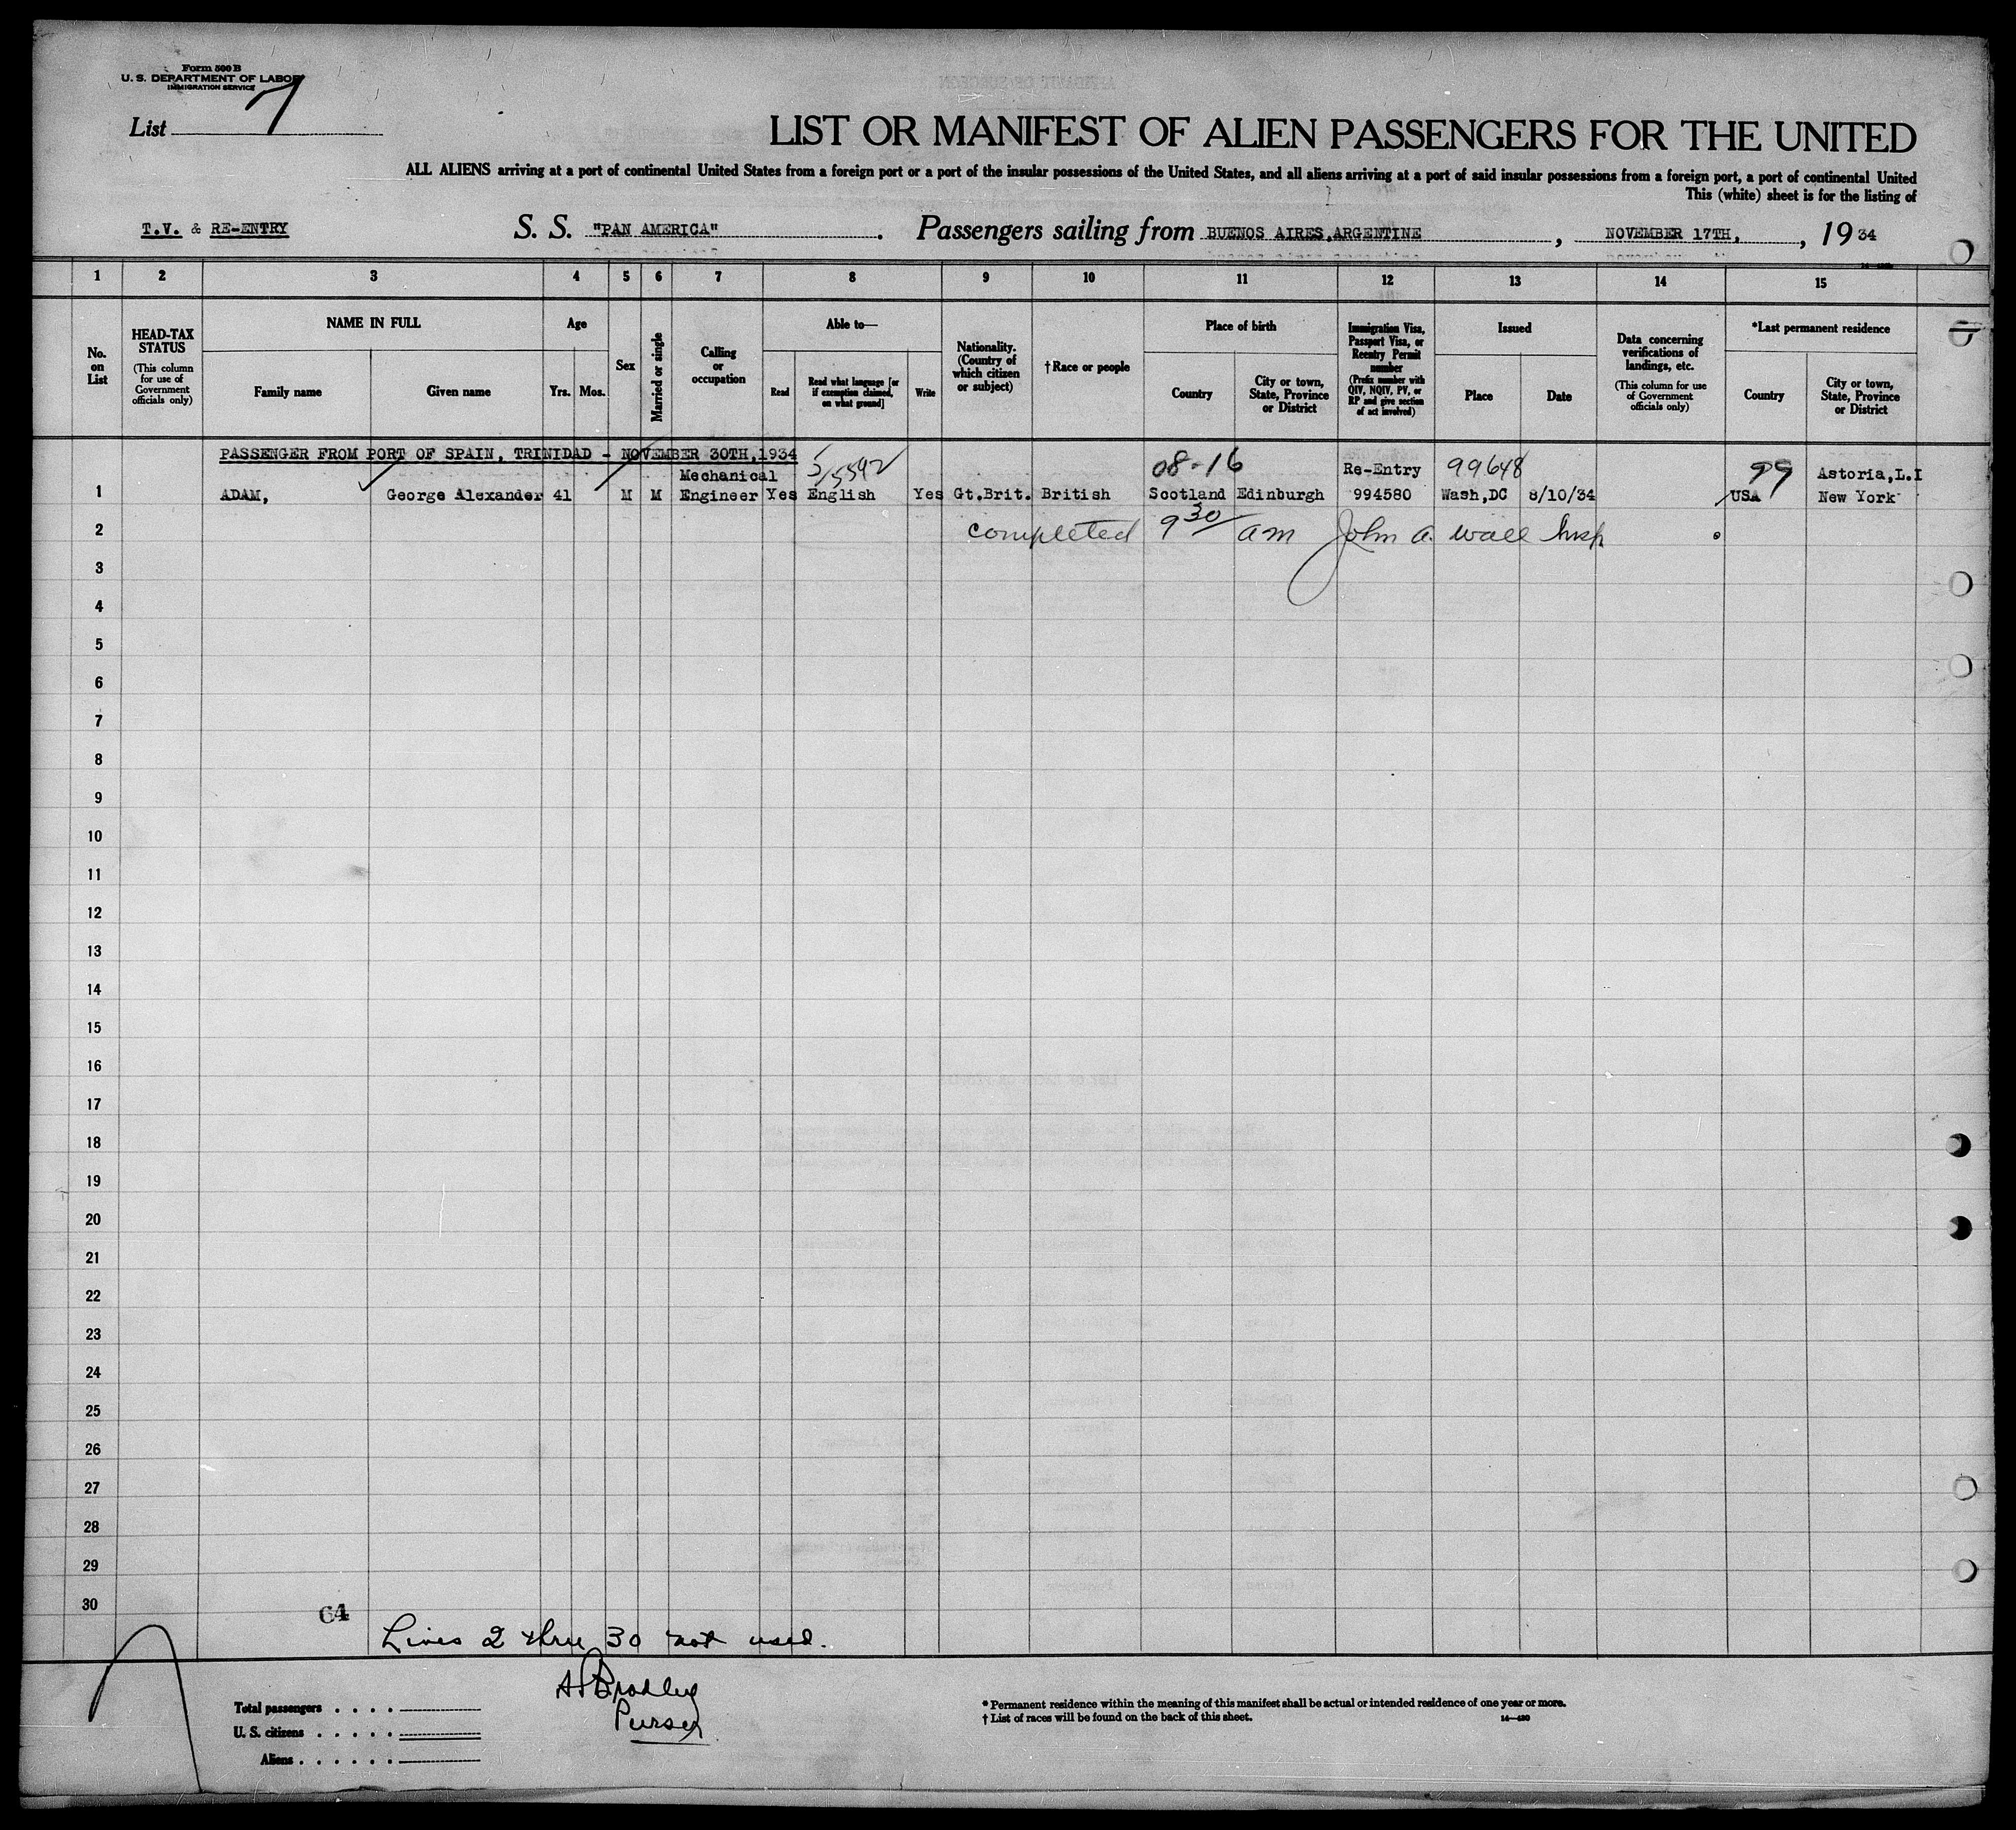 Form 500 B
U. S. DEPARTMENT OF LABOR
IMMIGRATION SERVICE
List 7
LIST OR MANIFEST OF ALIEN PASSENGERS FOR THE UNITED
ALL ALIENS arriving at a port of continental United States from a foreign port or a port of the insular possessions of the United States, and all aliens arriving at a port of said insular possessions from a foreign port, a port of continental United
This (white) sheet is for the listing of
T.V. & RE-ENTRY S. S. "PAN AMERICA". Passengers sailing from BUENOS AIRES, ARGENTINE, NOVEMBER 17TH, , 1934
1 2 3 4 5 6 7 8 9 10 11 12 13 14 15
No. on List
HEAD-TAX STATUS (This column for use of Government officials only)
NAME IN FULL
Family name Given name
Age
Yrs. Mos.
Sex
Married or single
Calling or occupation
Able to—
Read Read what language [or if exemption claimed, on what ground] Write
Nationality. (Country of which citizen or subject)
†Race or people
Place of birth
Country City or town, State, Province or District
Immigration Visa, Passport Visa, or Reentry Permit number (Prefix number with QIV, NQIV, PV, or RP and give section of act involved)
Issued
Place Date
Data concerning verifications of landings, etc. (This column for use of Government officials only)
*Last permanent residence
Country City or town, State, Province or District
PASSENGER FROM PORT OF SPAIN, TRINIDAD - NOVEMBER 30TH, 1934
Mechanical 08-16 Re-Entry 99648 99 Astoria, L.I
1 ADAM, George Alexander 41 M M Engineer Yes English Yes Gt.Brit. British Scotland Edinburgh 994580 Wash, DC 8/10/34 USA New York
2 completed 9 30 am John A. Wall Insp
3
4
5
6
7
8
9
10
11
12
13
14
15
16
17
18
19
20
21
22
23
24
25
26
27
28
29
30
64
Lines 2 thru 30 not used.
Bradley
Purser
Total passengers . . . .
U. S. citizens . . . . .
Aliens . . . . . .
* Permanent residence within the meaning of this manifest shall be actual or intended residence of one year or more.
† List of races will be found on the back of this sheet.